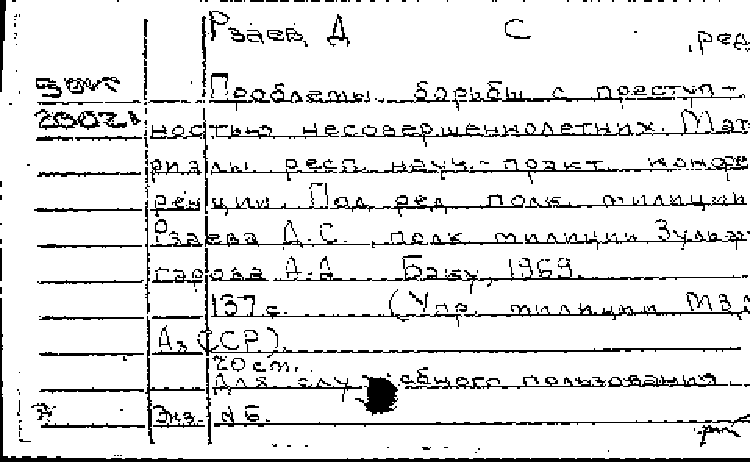 Рзаев, Д С , ред
Проблемы борьбы с преступ-
ностью несовершеннолетних. Мат
риалы респ. науч.-практ. конфе
ренции. Под ред. полк. милиции
Рзаева Д.С., полк милиции Зульф
гарова А.А Баку, 1969.
137 с. (Упр. милиции
Аз ССР).
20 cm.
Для служебного пользования
Экз. №6.